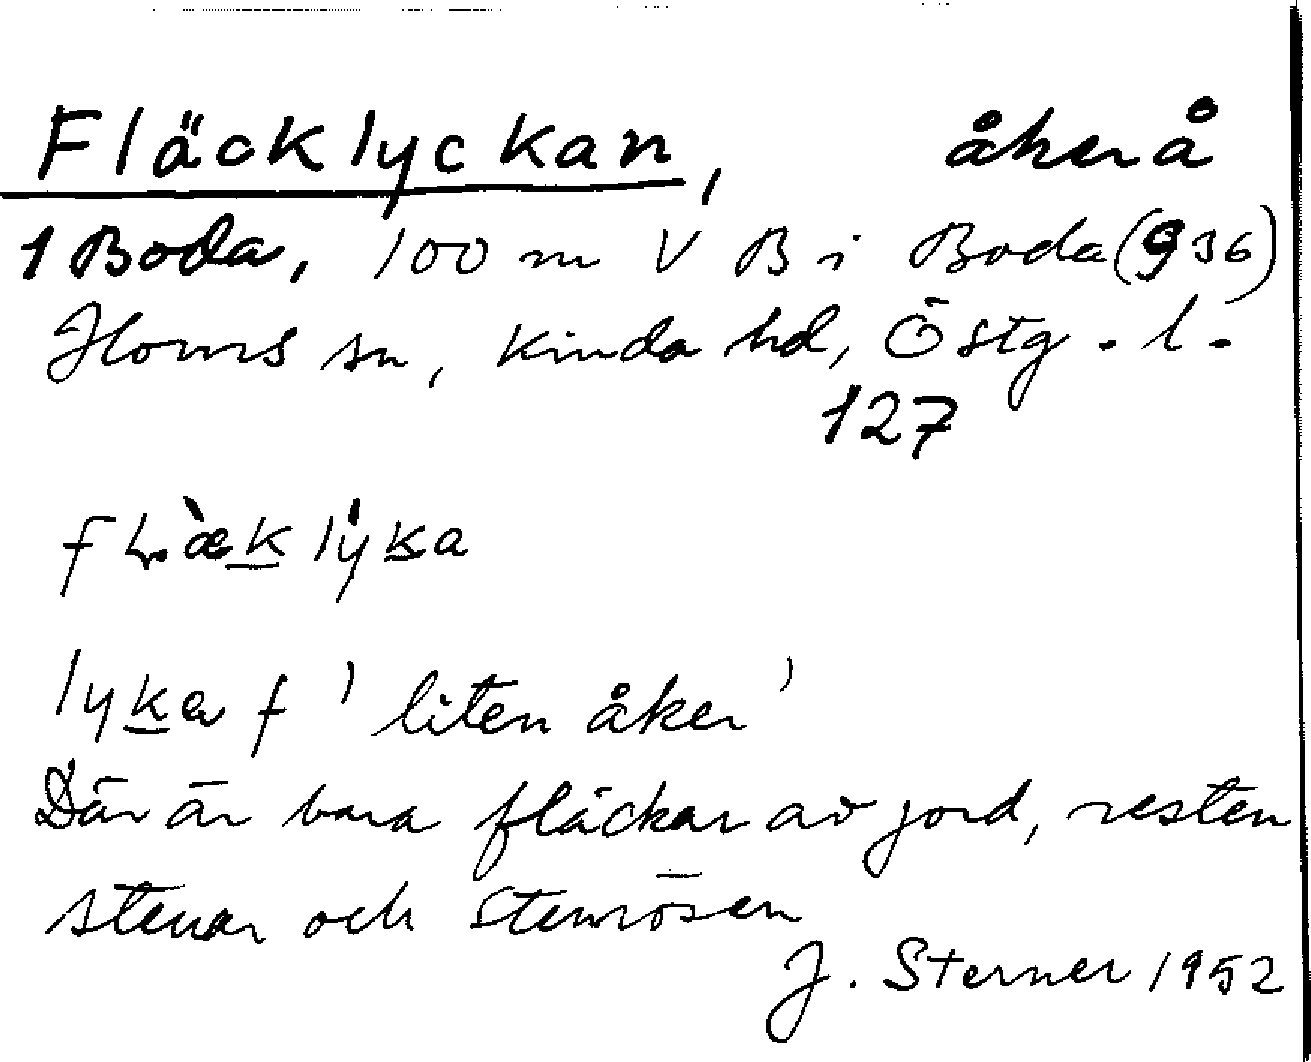 Fläcklyckan, åkerå
1 Boda, 100 m V B i Boda (936)
Horns sn, Kinda hd, Östg. l.
127
fḷæ̀klýka
lyka f 'liten åker'
Där är bara fläckar av jord, resten
stenar och stenrösen
J. Sterner 1952